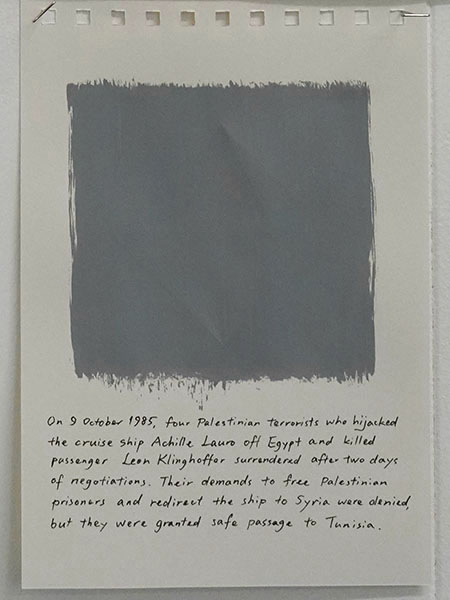 On 9 October 1985, four Palestinian terrorists who hijacked
the cruise ship Achille Lauro off Egypt and killed
passenger Leon Klinghoffer surrendered after two days
of negotiations. Their demands to free Palestinian
prisoners and redirect the ship to Syria were denied,
but they were granted safe passage to Tunisia.